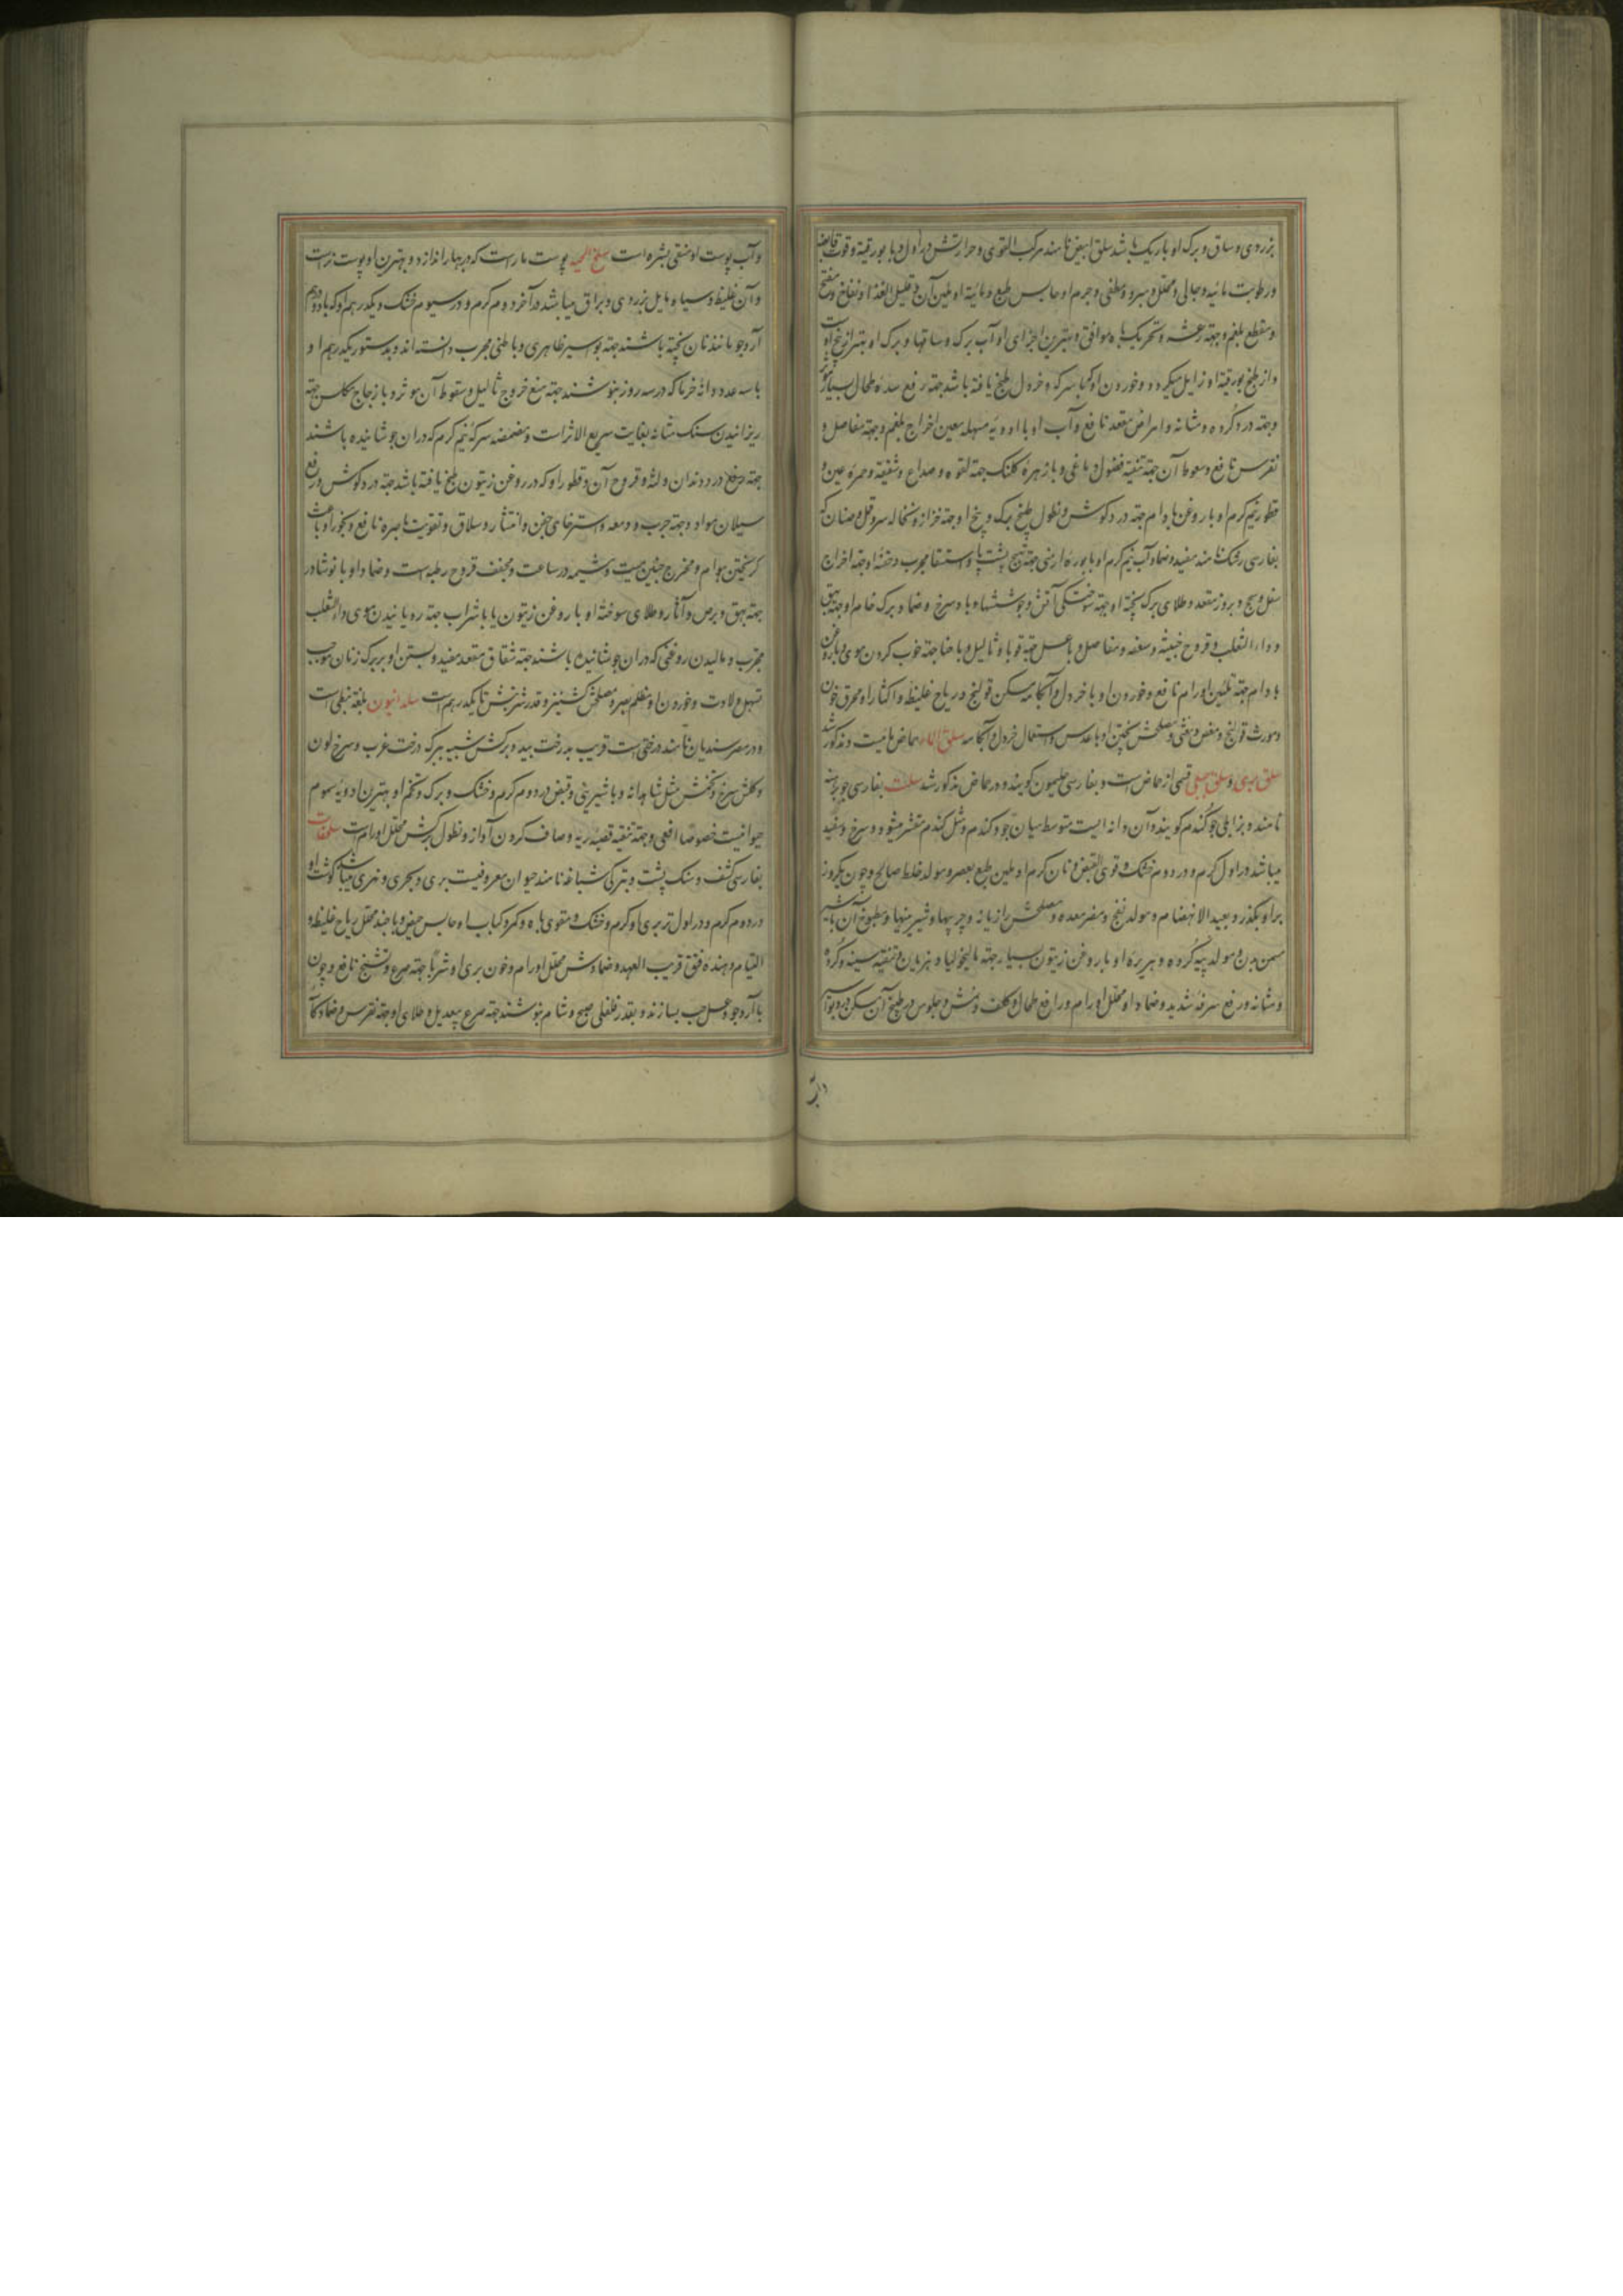 بزردی و ساق و برک او باریک باشد سلق ابیض نامند مرکب القوی و حرارتش در اول و با بورقیة و قوت قابضه
و رطوبت مائیه و جالی و محلل و مبرد و ملطفی و جرم او حابس طبع و مائیة او ملین آن و قلیل الغذا و نفاخ و مفتح
و مقطع بلغم و جهة رعشه و تحریک باه موافق و بهترین اجزای او آب برک و ساقها و برک او بهتر از بیخ اوست
و از طبخ بورقیة او زایل میکردد و خوردن او که با سرکه و خردل طبخ یافته باشد جهة رفع سده طحال بسیار موثر
و جهة درد کرده و مثانه و امراض مقعد نافع و آب او با ادویه مسهله معین اخراج بلغم و جهة مفاصل و
نقرس نافع و سعوط آن جهة تنقیه فضول دماغی و با زهره کلنک جهة لقوه و صداع و شقیقه و حمره عین و
قطور نیم کرم او با روغن بادام جهة درد کوش و نطول طبخ برک و بیخ او جهة حزاز و نخاله سر و قمل و صئبان که
بفارسی رشک نامند مفید و ضماد آب نیم کرم او با بوره ارمنی جهة تهیج پشت پا و استسقا مجرب و حقنه او جهة اخراج
ثفل و سحج و بروز مقعد و طلای برک پخته او جهة سوختکی آتش و جوششها و باد سرخ و ضماد برک خام او جهة بهق
و داء الثعلب و قروح خبیثه و سعفه و مفاصل و با عسل جهة قوبا و ثالیل و با حنا جهة خوب کردن موی و با روغن
بادام جهة تلیین اورام نافع و خوردن او با خردل و آبکامه مسکن قولنج و ریاح غلیظ و اکثار او محرق خون
و مورث قولنج و مغص و مغثی و مصلحش پختن او با عدس و استعمال خردل و آبکامه سلق الماء حماض مائیست و مذکور شد
سلق بری و سلق جبلی قسمی از حماض است و بفارسی حلیمون کویند و در حماض مذکور شد سلت بفارسی جو برهنه
نامند و بزابلی جو کندم کویند و آن دانه ایست متوسط میان جو و کندم و مثل کندم مقشر میشود و سرخ و سفید
میباشد در اول کرم و در دوم خشک و قوی القبض و نان کرم او ملین طبع بعصر و مولد خلط صالح و چون یکروز
بر او بکذرد بعید الانهضام و مولد نفخ و مضر معده و مصلحش رازیانه و چربیها و شیرینیها و مطبوخ آن با شیر
مسمن بدن و مولد پیه کرده و هریره او با روغن زیتون بسیار جهة مالیخولیا و هذیان و تنقیه سینه و کرده
و مثانه و رفع سرفه شدید و ضماد او محلل اورام و رافع طحال و کلف و نمش و جلوس در طبخ آن مسکن درد بواسیر
و آب
و آب پوست او منقی بشره است سلخ الحیه پوست مار است که در بهار اندازد و بهترین او پوست نر است
و آن غلیظ و سیاه مایل بزردی و براق میباشد در آخر دوم کرم و در سیوم خشک و یکدرهم او که با دو درهم
آرد جو مانند نان پخته باشند جهة بواسیر ظاهری و باطنی مجرب دانسته اند و بدستور یکدرهم او
با سه عدد دانه خرما که در سه روز بنوشند جهة منع خروج ثالیل و سقوط آن موثر و با زجاج مکلس جهة
ریزانیدن سنک مثانه بغایت سریع الاثر است و مضمضه سرکه نیم کرم که در ان جوشانیده باشند
جهة رفع درد دندان و لثه و قروح آن و قطور او که در روغن زیتون طبخ یافته باشد جهة درد کوش و رفع
سیلان مواد و جهة جرب و دمعه و استرخای جفن و انتشار و سلاق و تقویت باصره نافع و بخور او باعث
کریختن هوام و مخرج جنین میت و مشیمه در ساعت و مجفف قروح رطبه است و ضماد او با نوشادر
جهة بهق و برص و آثار و طلای سوخته او با روغن زیتون یا با شراب جهة رویانیدن موی داء الثعلب
مجرب و مالیدن روغنی که در ان جوشانیده باشند جهة شقاق مقعد مفید و بستن او بر برک زنان موجب
تسهیل ولادت و خوردن او مظلم بصر و مصلحش کشنیز و قدر شربتش تا یکدرهم است سلدانیون بلغة نبطی است
و در مصر سندیان نامند درختیست قریب بدرخت بید و برکش شبیه ببرک درخت غرب و سرخ لون
و کلش سرخ و تخمش مثل شاهدانه و با شیرینی و قبض در دوم کرم و خشک و برک و تخم او بهترین ادویه سموم
حیوانیست خصوصا افعی و جهة تنقیه قصبه ریه و صاف کردن آواز و نطول برکش محلل اورام است سلحفات
بفارسی کشف و سنک پشت و بترکی شباغه نامند حیوان معروفیست بری و بحری و نهری میباشد کوشت او
در دوم کرم و در اول تر بری او کرم و خشک و مقوی باه و کمر و کباب او حابس حیض و با جند محلل ریاح غلیظ و
التیام دهنده فتق قریب العهد و ضمادش محلل اورام و خون بری او شربا جهة صرع و تشنج نافع و چون
با آرد جو و عسل حب بسازند و بقدر فلفلی صبح و شام بنوشند جهة صرع بیعدیل و طلای او جهة نقرس و ضمادا